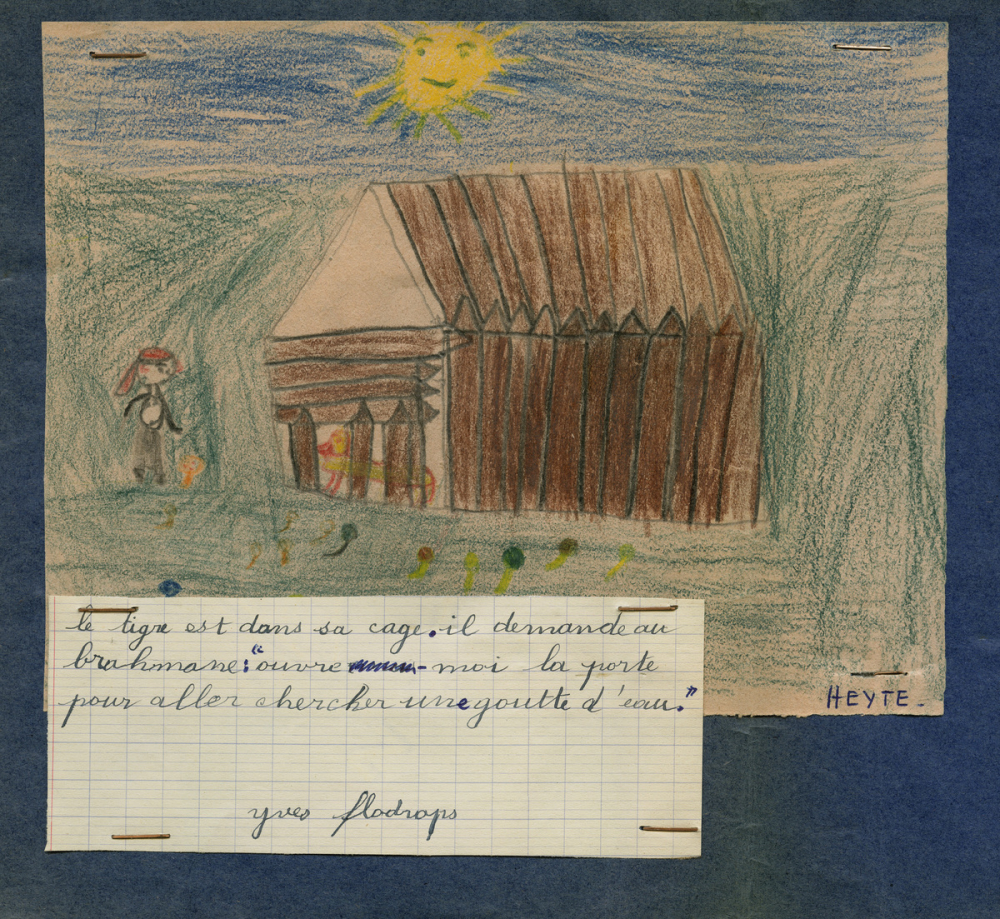 le tigre est dans sa cage. il demande au
brahmane: "ouvre-moi la porte
pour aller chercher une goutte d'eau."
yves flodrops
HEYTE.